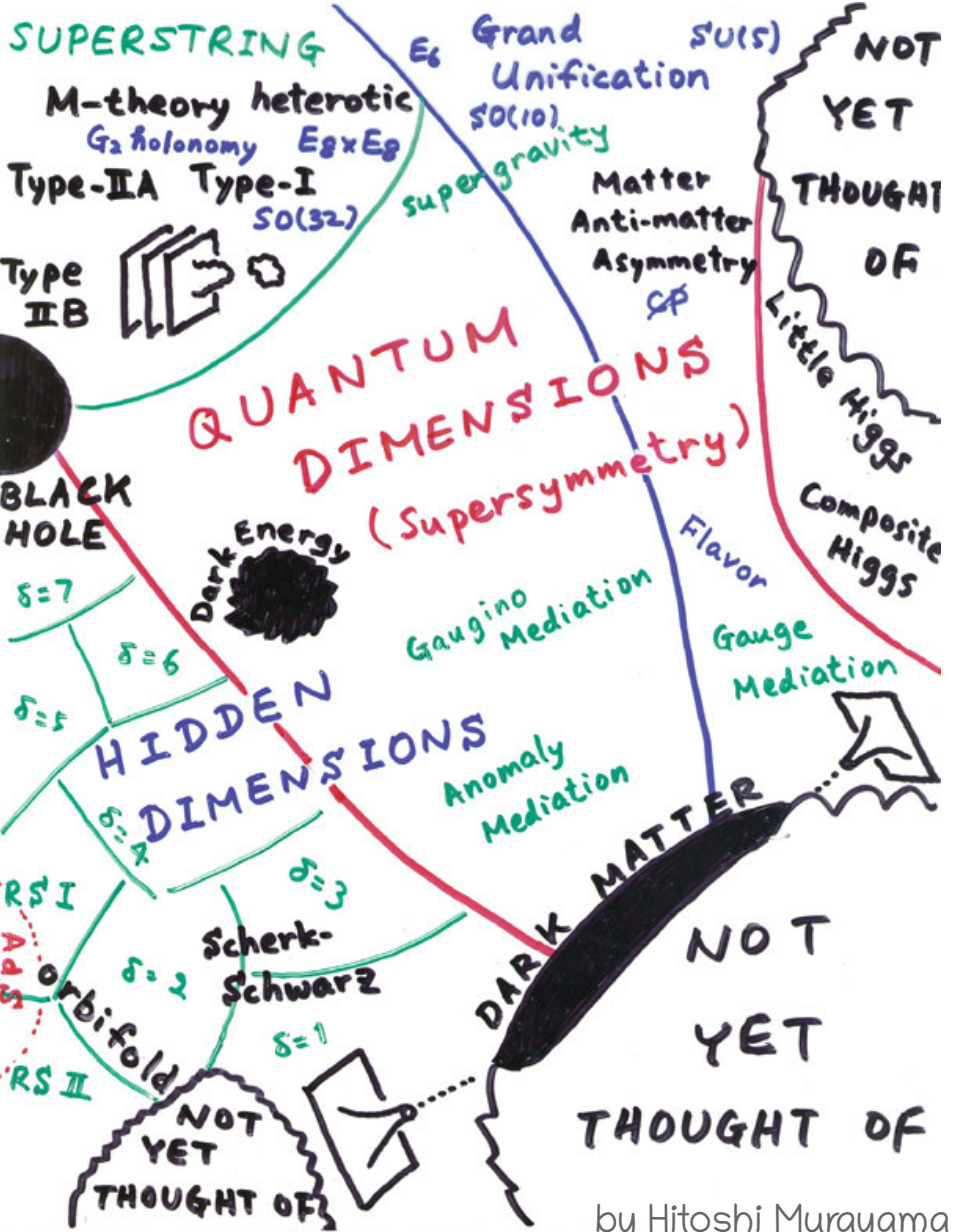 SUPERSTRING
M-theory heterotic
G₂ holonomy E₈×E₈
Type-IIA Type-I
SO(32)
Type
IIB
E₆
Grand
Unification
SU(5)
SO(10)
supergravity
Matter
Anti-matter
Asymmetry
CP
NOT
YET
THOUGHT
OF
Little Higgs
Composite
Higgs
QUANTUM
DIMENSIONS
(Supersymmetry)
BLACK
HOLE
Dark Energy
Flavor
Gaugino
Mediation
Gauge
Mediation
Anomaly
Mediation
δ=7
δ=6
δ=5
HIDDEN
DIMENSIONS
δ=4
δ=3
RS I
AdS
Orbifold
δ=2
Scherk-
Schwarz
δ=1
RS II
DARK MATTER
NOT
YET
THOUGHT OF
NOT
YET
THOUGHT OF
by Hitoshi Murayama